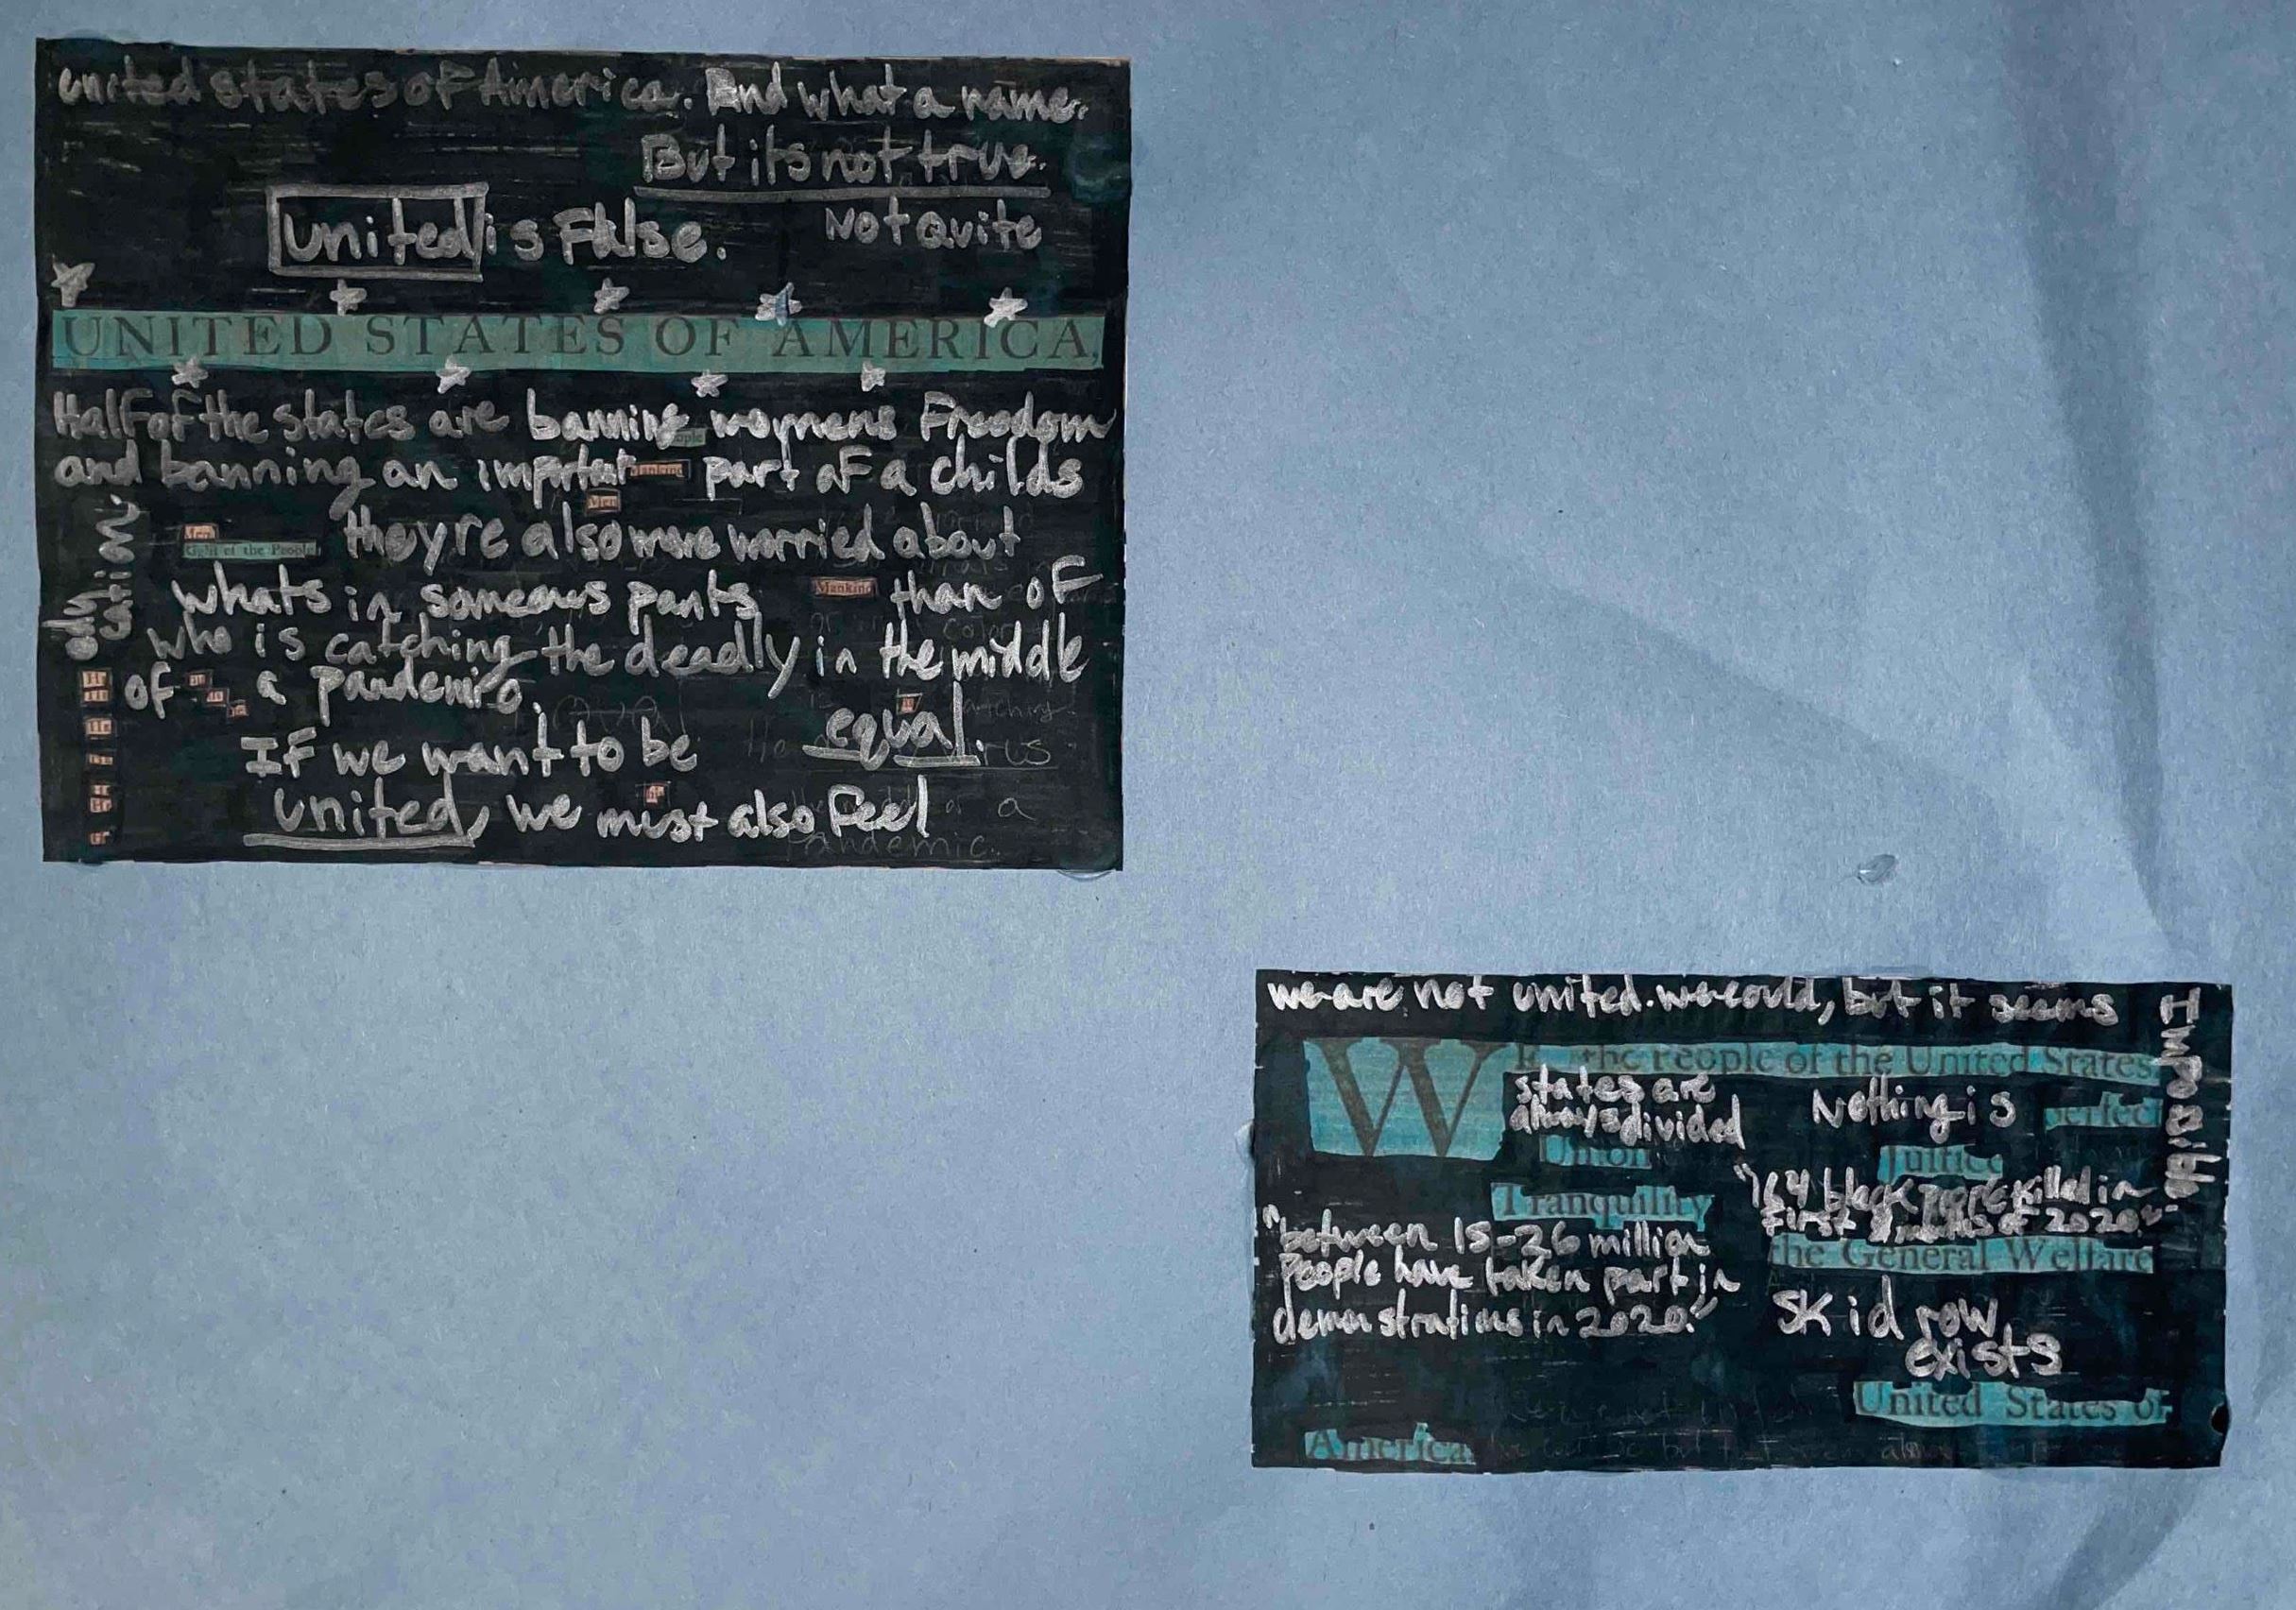 united states of America. And what a name.
But its not true.
united is False. Not Quite
UNITED STATES OF AMERICA,
Half of the states are banning womens Freedom
and banning an important Mankind part of a childs
edu
cation.
Men
Men
ight of the People
they're also more worried about
whats in someones pants Mankind than of
who is catching the deadly in the middle
of a pandemic.
If we want to be equal.
united, we must also feel
He
He
He
we are not united. we could, but it seems
Impossible
WE the People of the United States
states are
always divided
Nothing is perfect
Union
Justice
Tranquility
"164 black were killed in
First 8 months of 2020".
"between 15-26 million
People have taken part in
demonstrations in 2020."
the General Welfare
Skid row
exists
United States of
America